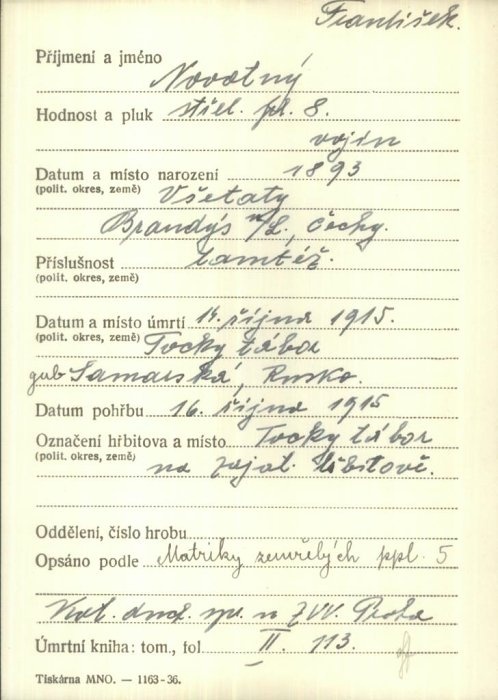 František.
Příjmení a jméno
Novotný
Hodnost a pluk střel. pl. 8.
vojín
Datum a místo narození 1893
(polit. okres, země) Všetaty
Brandýs n/L., Čechy.
Příslušnost tamtéž.
(polit. okres, země)
Datum a místo úmrtí 14. října 1915.
(polit. okres, země) Tocky tábor
gub Samarská, Rusko.
Datum pohřbu 16. října 1915
Označení hřbitova a místo Tocky tábor
(polit. okres, země)
na zajat. hřbitově.
Oddělení, číslo hrobu
Opsáno podle Matriky zemřelých ppl. 5
Kat. duch. spr. u ZVV. Praha
Úmrtní kniha: tom., fol II. 113.
Tiskárna MNO. — 1163-36.